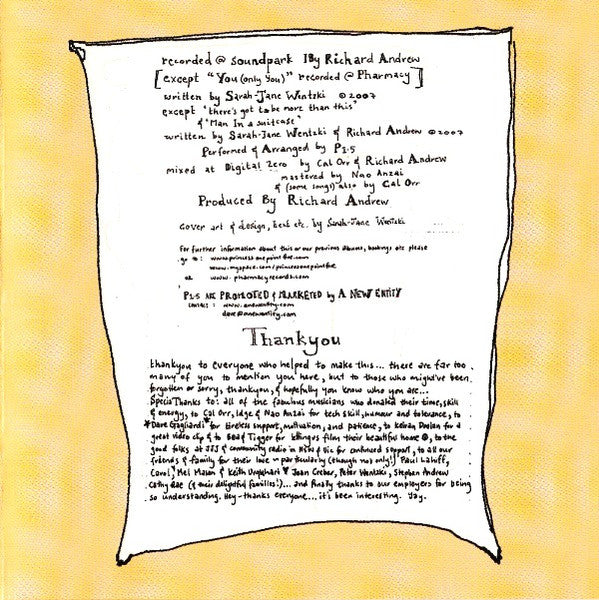 recorded @ soundpark By Richard Andrew
[except "You (only You)" recorded @ Pharmacy]
written by Sarah-Jane Wentzki ©2007
except 'there's got to be more than this'
& 'Man In a suitcase'
written by Sarah-Jane Wentzki & Richard Andrew ©2007
Performed & Arranged by P1.5
mixed at Digital Zero by Cal Orr & Richard Andrew
mastered by Nao Anzai
& (some songs) also by Cal Orr
Produced By Richard Andrew
cover art & design, text etc. by Sarah-Jane Wentzki
For further information about this or our previous albums, bookings etc please
go to: www.princessonepointfive.com
www.myspace.com/princessonepointfive
or www.pharmacyrecords.com
P1.5 are PROMOTED & MARKETED by A NEW ENTITY
contact: www.anewentity.com
dave@anewentity.com
Thankyou
thankyou to everyone who helped to make this... there are far too
many of you to mention you here, but to those who might've been
forgotten or sorry, thankyou, & hopefully you know who you are...
Special Thanks to: all of the fabulous musicians who donated their time, skill
& energy, to Cal Orr, Idge & Nao Anzai for tech skill, humour and tolerance, to
*Dave Gagliardi* for tireless support, motivation, and patience, to Keiran for a
great video clip & to & Tigger for letting us film their beautiful home, to the
good folks at JJJ & community radio in & Vic for continued support, to all our
friends & family for their love - particularly (though not only!) Paul Lahiff,
Carol, Mel Mason & Keith Urquhart Joan Creber, Peter Wentzki, Stephen Andrew
Cathy Rae (& their delightful families!)... and finally thanks to our employers for being
so understanding. Hey - thanks everyone... it's been interesting. Yay.